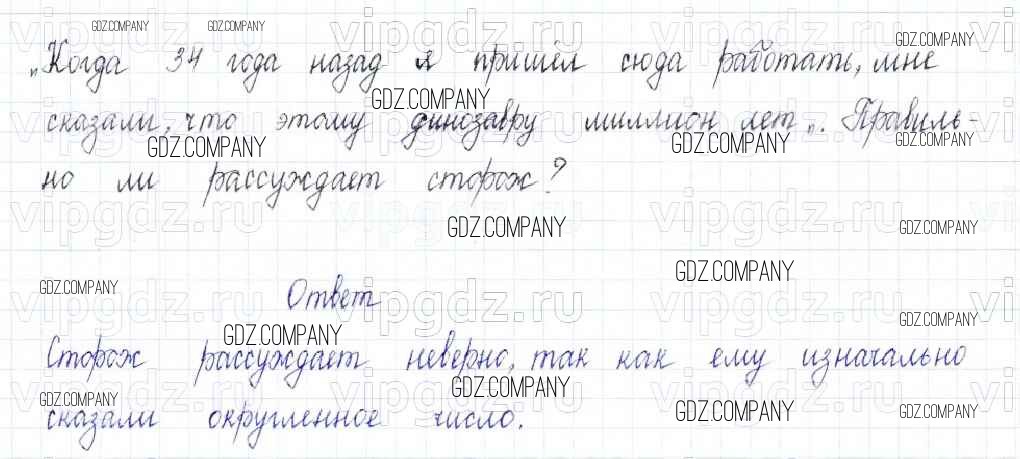 GDZ.COMPANY GDZ.COMPANY GDZ.COMPANY
vipgdz.ru vipgdz.ru vipgdz.ru vi
„Когда 34 года назад я пришёл сюда работать, мне
GDZ.COMPANY
сказали, что этому динозавру миллион лет„. Правиль-
GDZ.COMPANY GDZ.COMPANY GDZ.COMPANY
но ли рассуждает сторож?
vipgdz.ru vipgdz.ru vipgdz.ru vi
GDZ.COMPANY GDZ.COMPANY
GDZ.COMPANY
GDZ.COMPANY
Ответ
vipgdz.ru vipgdz.ru vipgdz.ru vi
GDZ.COMPANY GDZ.COMPANY
Сторож рассуждает неверно, так как ему изначально
GDZ.COMPANY GDZ.COMPANY
vipgdz.ru vipgdz.ru vipgdz.ru vi
сказали округленное число.
GDZ.COMPANY GDZ.COMPANY